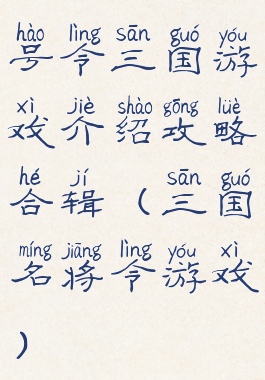 hào lìng sān guó yóu
号令三国游
xì jiè shào gōng lüè
戏介绍攻略
hé jí sān guó
合辑（三国
míng jiāng lìng yóu xì
名将令游戏
）